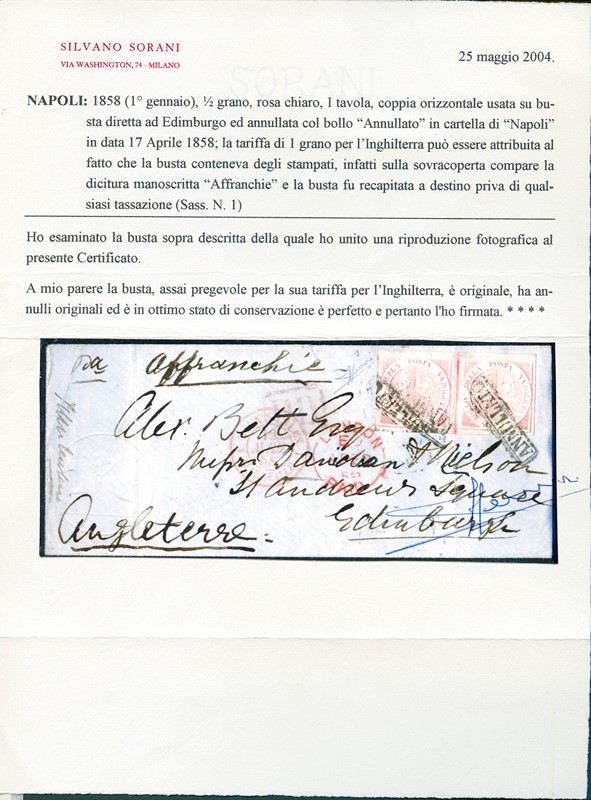 SILVANO SORANI
VIA WASHINGTON, 74 - MILANO
25 maggio 2004.
SORANI
NAPOLI: 1858 (1° gennaio), ½ grano, rosa chiaro, I tavola, coppia orizzontale usata su bu-
sta diretta ad Edimburgo ed annullata col bollo “Annullato” in cartella di “Napoli”
in data 17 Aprile 1858; la tariffa di 1 grano per l'Inghilterra può essere attribuita al
fatto che la busta conteneva degli stampati, infatti sulla sovracoperta compare la
dicitura manoscritta “Affranchie” e la busta fu recapitata a destino priva di qual-
siasi tassazione (Sass. N. 1)
Ho esaminato la busta sopra descritta della quale ho unito una riproduzione fotografica al
presente Certificato.
A mio parere la busta, assai pregevole per la sua tariffa per l'Inghilterra, è originale, ha an-
nulli originali ed è in ottimo stato di conservazione è perfetto e pertanto l'ho firmata. * * * *
via affranchie
DELLA POSTA NAPOLE
DELLA POSTA NAPOLE
ANNULLATO
ANNULLATO
Alex. Bett Esq
Messrs Davidson & Nielson
St Andrews Square
Edinburgh
Angleterre